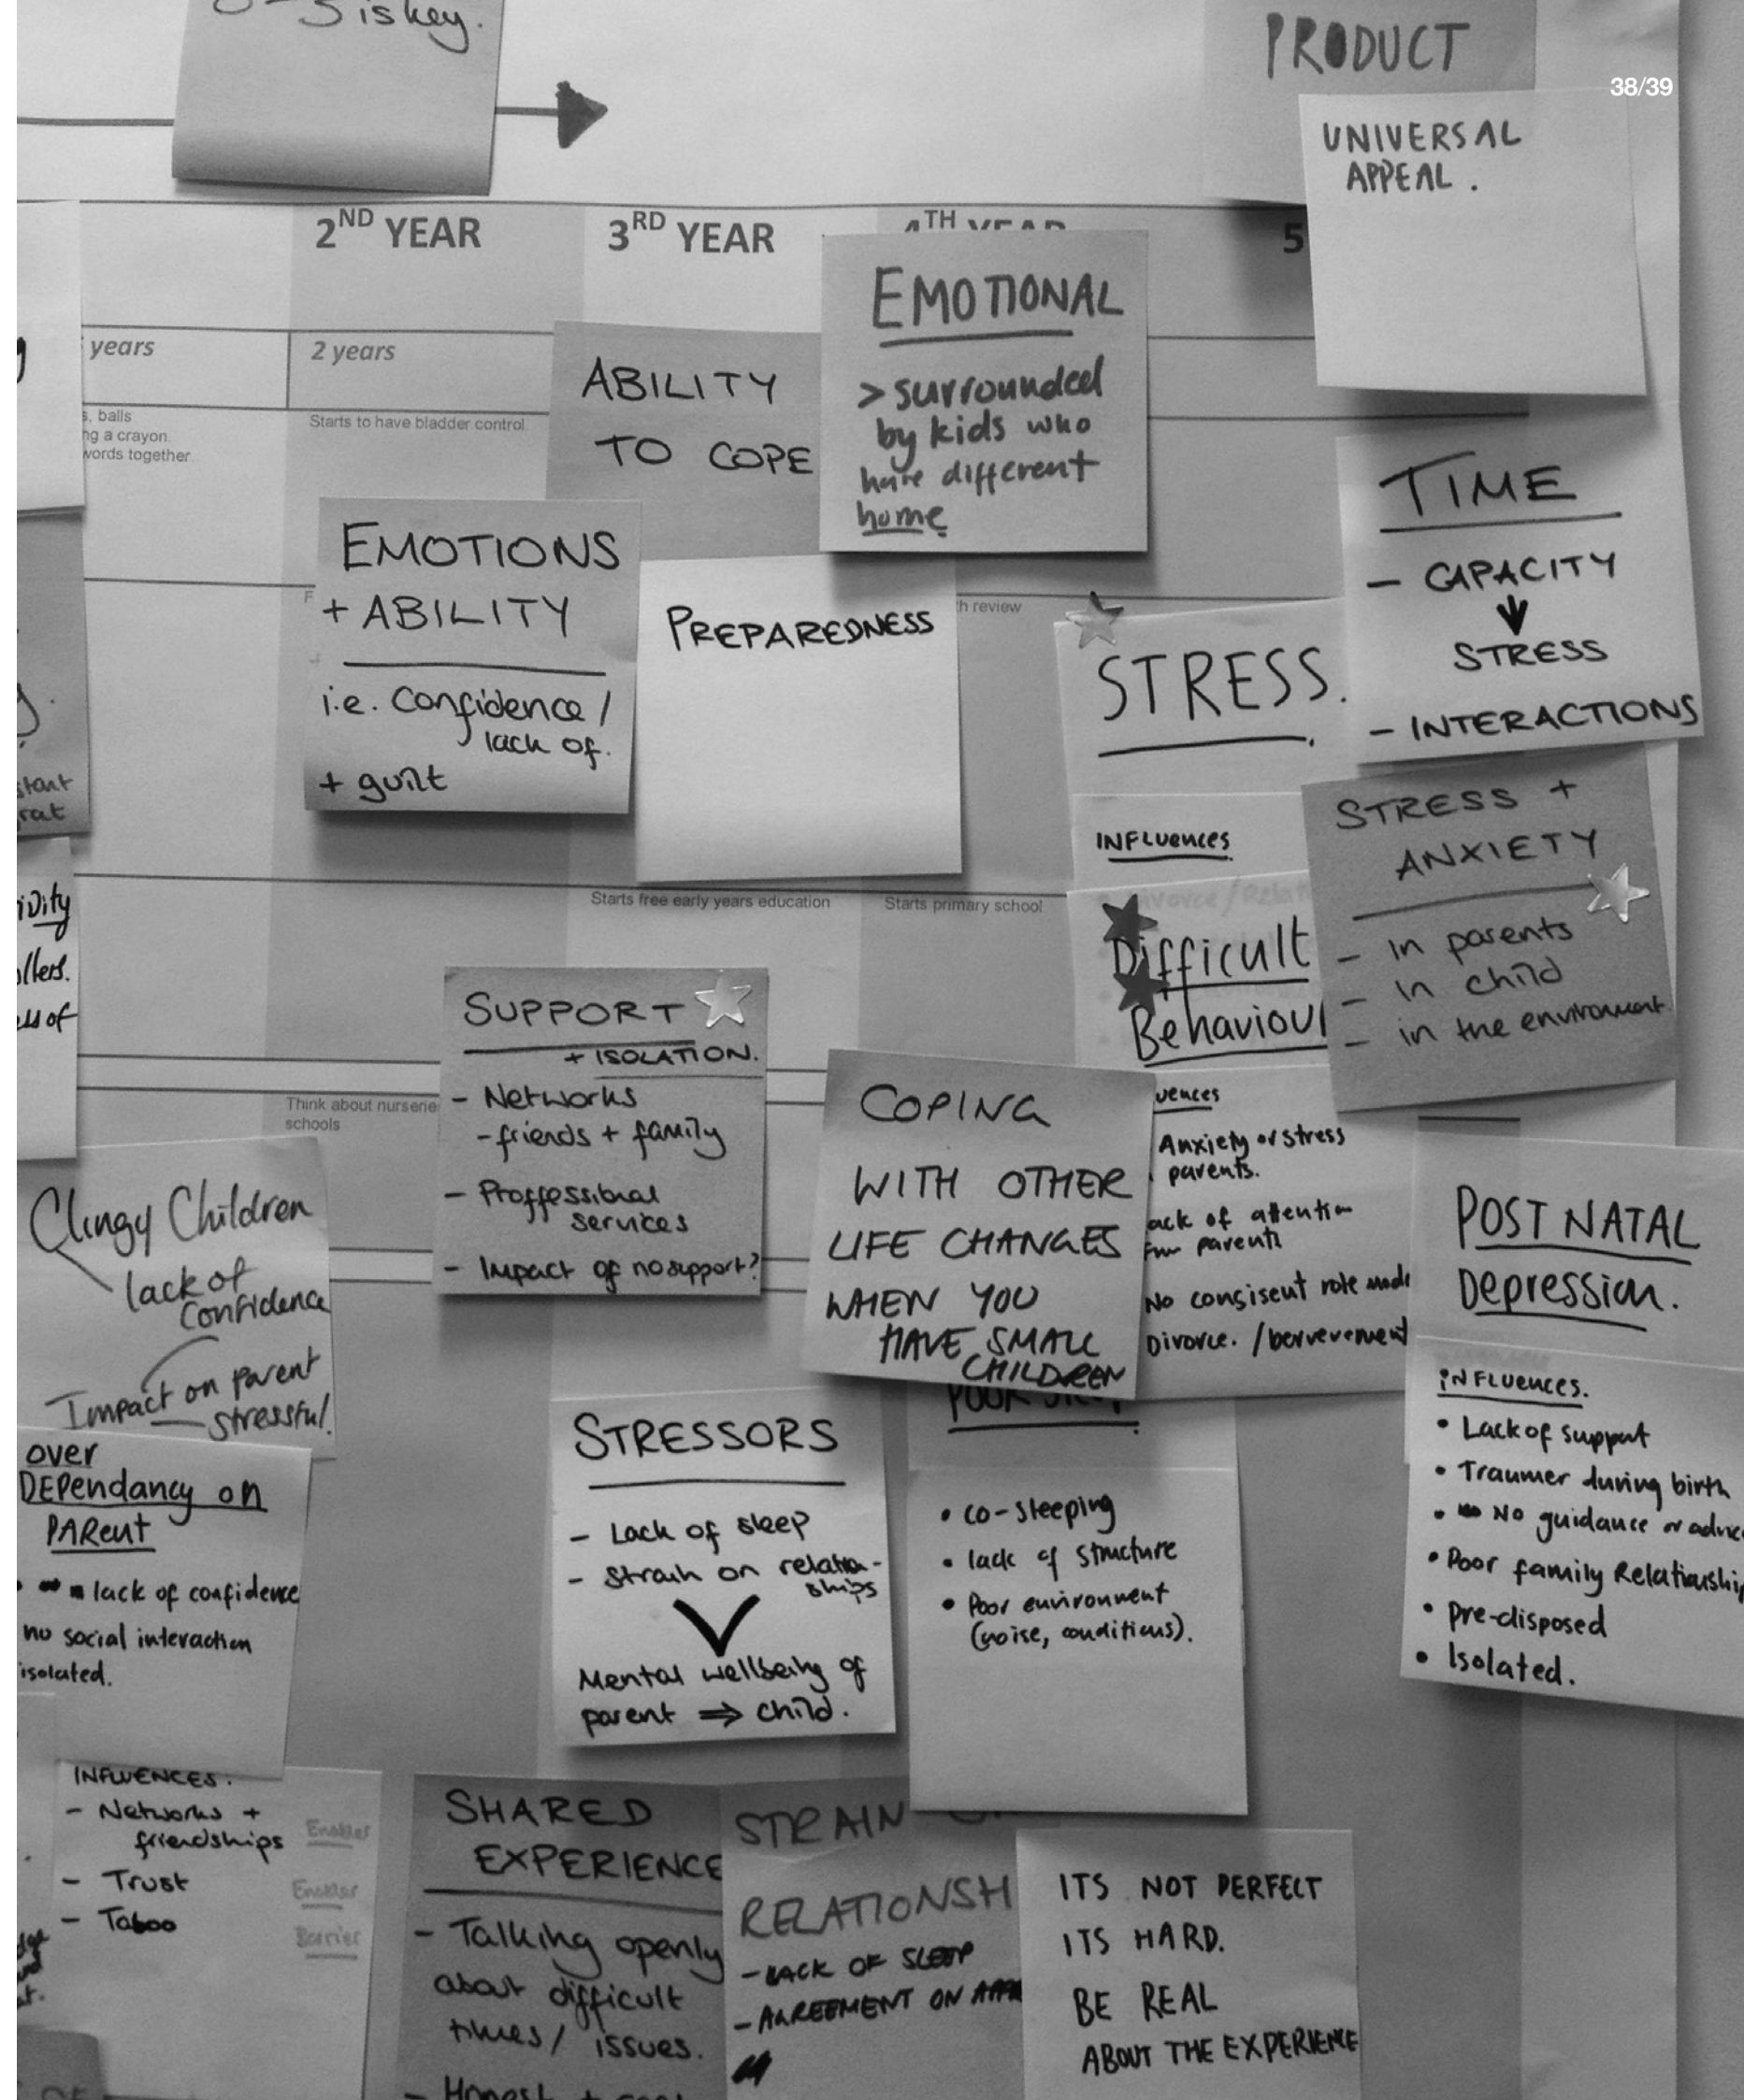 is key.
PRODUCT
38/39
UNIVERSAL
APPEAL.
2ND YEAR
3RD YEAR
4TH YEAR
5
years
2 years
s, balls
ng a crayon.
words together.
Starts to have bladder control
ABILITY
TO COPE
EMOTIONAL
> surrounded
by kids who
have different
home
TIME
- CAPACITY
STRESS
- INTERACTIONS
EMOTIONS
+ ABILITY
i.e. Confidence /
lack of.
+ guilt
PREPAREDNESS
h review
STRESS.
INFLUENCES
STRESS +
ANXIETY
- in parents
- in child
- in the environment
Difficult
Behaviour
Starts free early years education
Starts primary school
SUPPORT
+ ISOLATION.
- Networks
- friends + family
- Proffessional
services
- Impact of no support?
Think about nurserie
schools
COPING
WITH OTHER
LIFE CHANGES
WHEN YOU
HAVE SMALL
CHILDREN
uences
Anxiety or stress
parents.
ack of attention
from parents
No consisent role mode
Divorce. /berverement
POST NATAL
Depression.
INFLUENCES.
• Lack of support
• Traumer during birth
• No guidance or advice
• Poor family Relationship
• Pre-disposed
• Isolated.
Clingy Children
lack of
Confidence
Impact on parent
stressful.
over
DEPendancy on
PARent
lack of confidence
no social interaction
isolated.
STRESSORS
- Lack of sleep
- Strain on relation-
ships
Mental wellbeing of
parent ⇒ child.
• co-sleeping
• lack of structure
• Poor environment
(noise, conditions).
INFLUENCES.
- Networks +
friendships
Enabler
- Trust
Enabler
- Taboo
Barrier
SHARED
EXPERIENCE
- Talking openly
about difficult
times/ issues.
- Honest +
STRAIN
RELATIONSH
- LACK OF SLEEP
- AGREEMENT ON
ITS NOT PERFECT
ITS HARD.
BE REAL
ABOUT THE EXPERIENCE